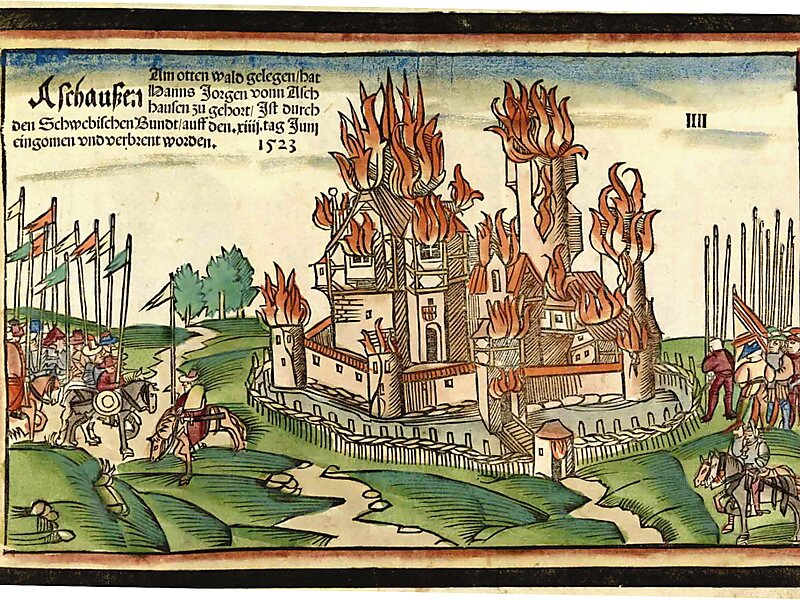 Aschaußen
Am otten wald gelegen/hat
Hanns Jorgen vonn Asch
hausen zu gehort/Ist durch
den Schwebischen Bundt/auff den.xiiij.tag Junij
eingomen vnd verbrent worden. 1523
IIII